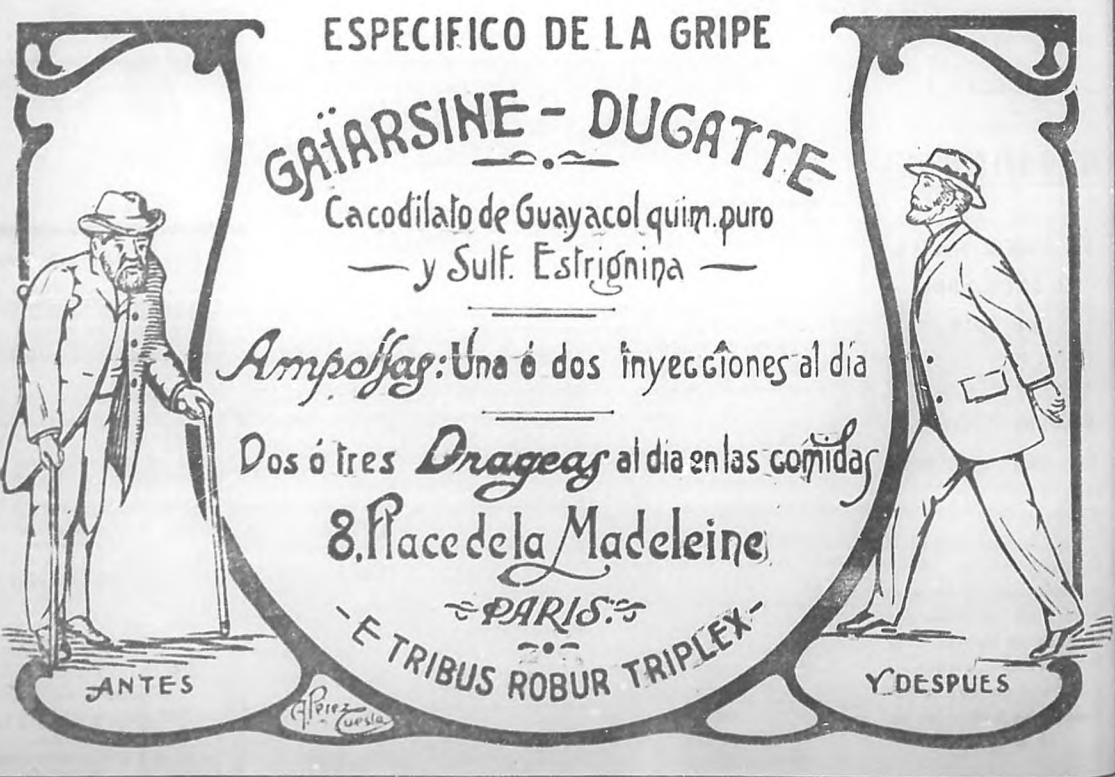 ESPECIFICO DE LA GRIPE
GAÏARSINE - DUGATTE
Cacodilato de Guayacol quim. puro
— y Sulf. Estrignina —
Ampollas: Una ó dos inyecciones al día
Dos ó tres Drageas al dia en las comidas
8, Place de la Madeleine
PARIS.
- E TRIBUS ROBUR TRIPLEX -
ANTES
Y DESPUES
A. Pérez
Cuesta